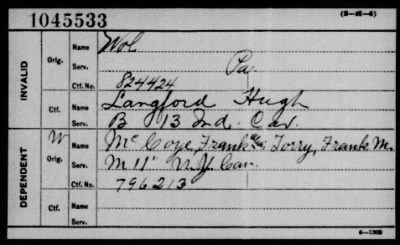 1045533 (3-df-6)
INVALID
Orig. Name Wol
Serv. Pa
Ctf. No. 824424
Ctf. Name Langford Hugh
Serv. B 13 Ind. Cav.
DEPENDENT
W Orig. Name McCoye, Frank als Torry, Frank M.
Serv. M 11" N.Y. Cav.
Ctf. No. 796213
Ctf. Name
Serv.
6-1302